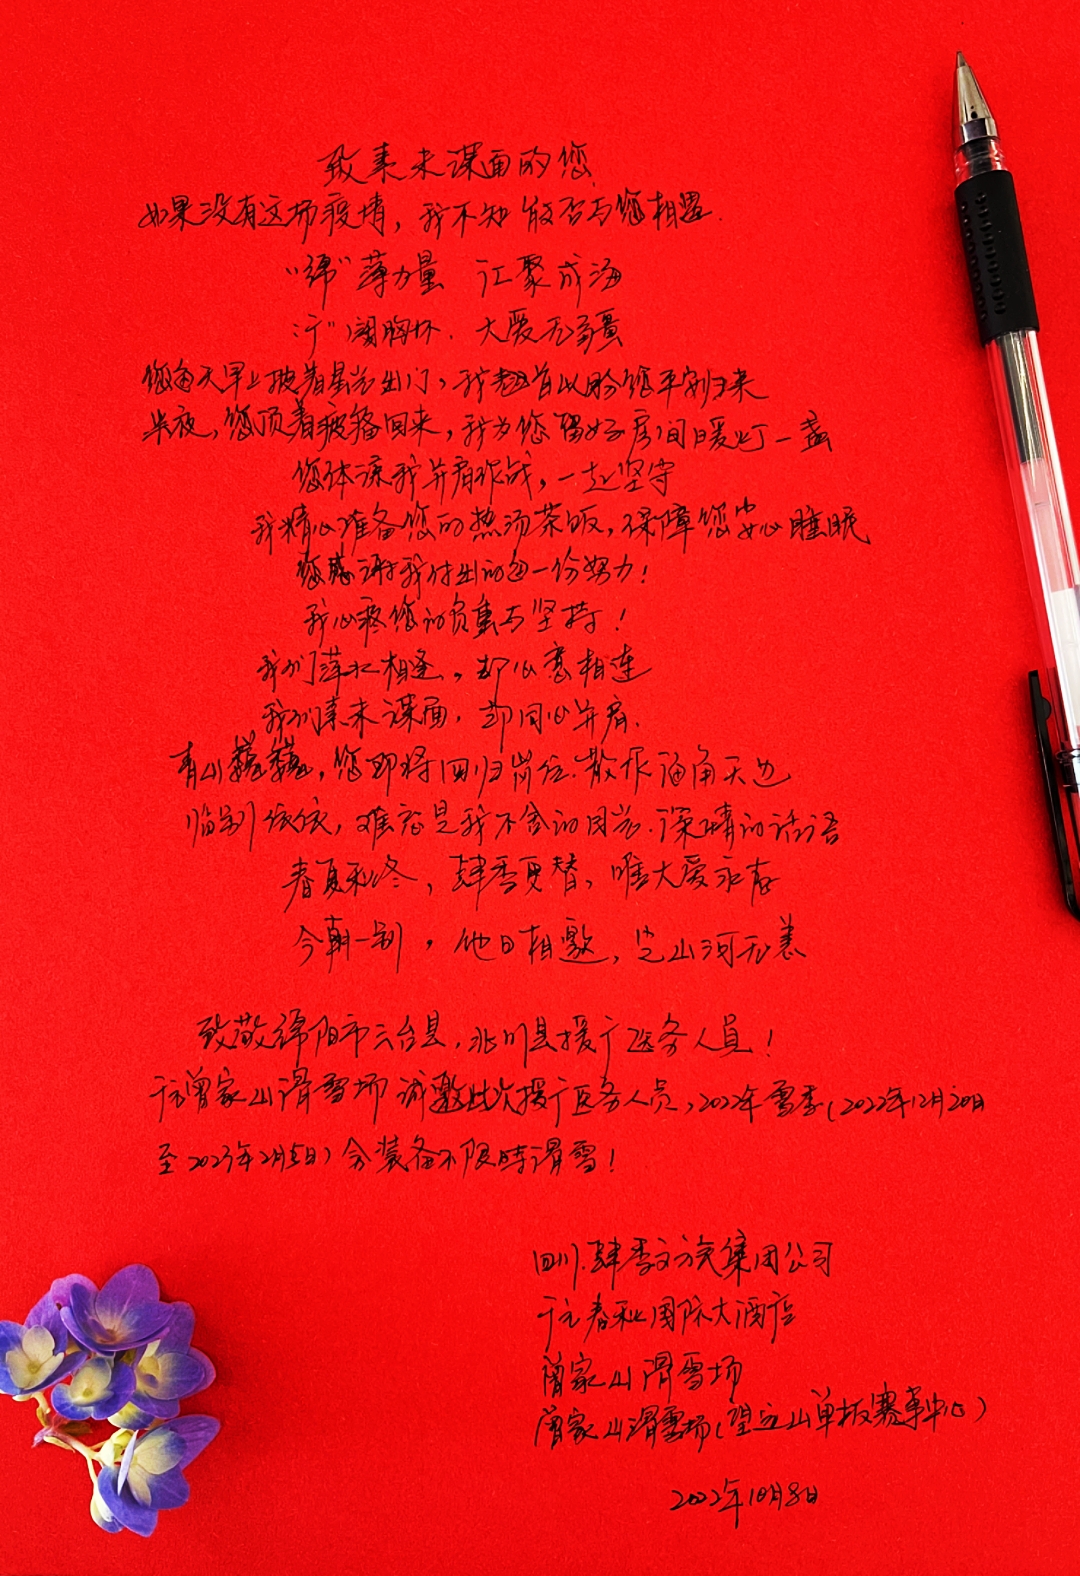 致素未谋面的您
如果没有这场疫情，我不知能否与您相遇.
“绵”薄力量 汇聚成海
“广”阔胸怀. 大爱无疆
您每天早上披着星光出门，我翘首以盼您平安归来
半夜，您顶着疲惫回来，我为您留好房间暖灯一盏
您体谅我并肩作战，一起坚守
我精心准备您的热汤茶饭，保障您安心睡眠
您感谢我付出的每一份努力！
我心疼您的负重与坚持！
我们萍水相逢，却心意相连
我们素未谋面，却同心并肩.
青山巍巍，您即将回归岗位.散作海角天边
临别依依，难忘是我不舍的目光.深情的话语
春夏秋冬，肆季更替，唯大爱永存
今朝一别，他日相邀，岂山河无恙
致敬绵阳市三台县，北川县援广医务人员！
广元曾家山滑雪场诚邀此次援广医务人员，2022年雪季（2022年12月20日
至2023年2月5日）含装备不限时滑雪！
四川.肆季文旅集团公司
广元春秋国际大酒店
曾家山滑雪场
曾家山滑雪场（望远山单板赛事中心）
2022年10月8日